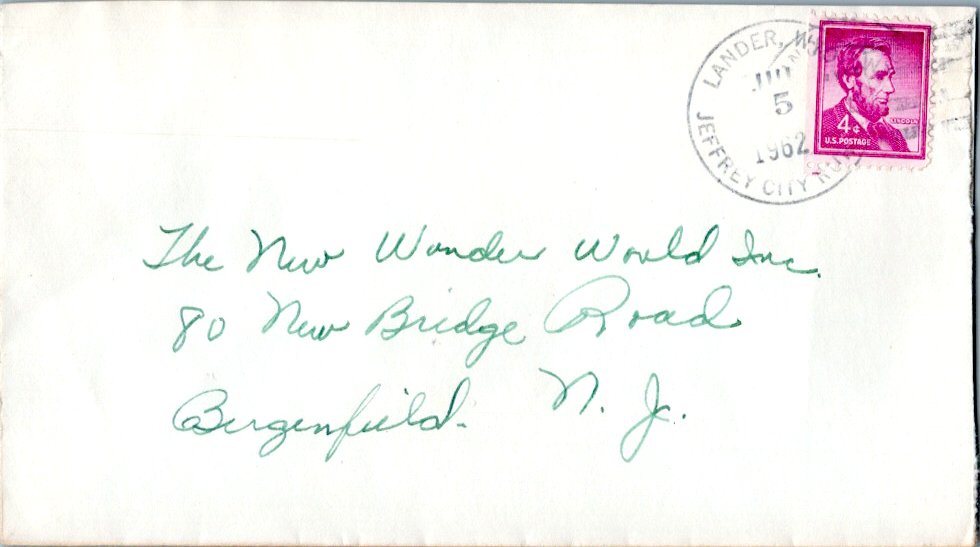 LANDER, WYO.
5
1962
JEFFREY CITY RUR.
LINCOLN
4¢
U.S. POSTAGE
The New Wonder World Inc.
80 New Bridge Road
Bergenfield. N. J.